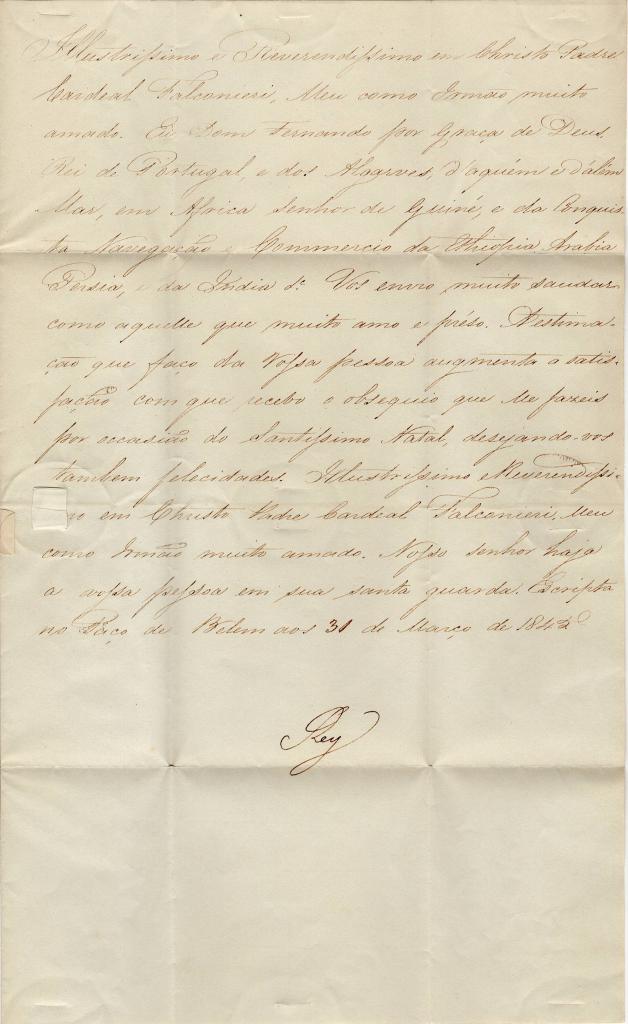 Illustrissimo e Reverendissimo em Christo Padre
Cardeal Falconieri, Meu como Irmão muito
amado. Eu Dom Fernando por Graça de Deus,
Rei de Portugal, e dos Algarves, d'aquém e d'além
Mar, em Africa Senhor de Guiné, e da Conquis-
ta Navegação e Commercio da Ethiopia Arabia
Persia, e da India &ª Vos envio muito saudar
como aquelle que muito amo e préso. A estima-
ção que faço da Vossa pessoa augmenta a satis-
fação com que recebo o obsequio que Me fazeis
por occasião do Santissimo Natal, desejando-vos
tambem felecidades. Illustrissimo e Reverendissi-
mo em Christo Padre Cardeal Falconieri, Meu
como Irmão muito amado. Nosso Senhor haja
a vossa pessoa em sua santa guarda. Escripta
no Paço de Belem aos 31 de Março de
Rey